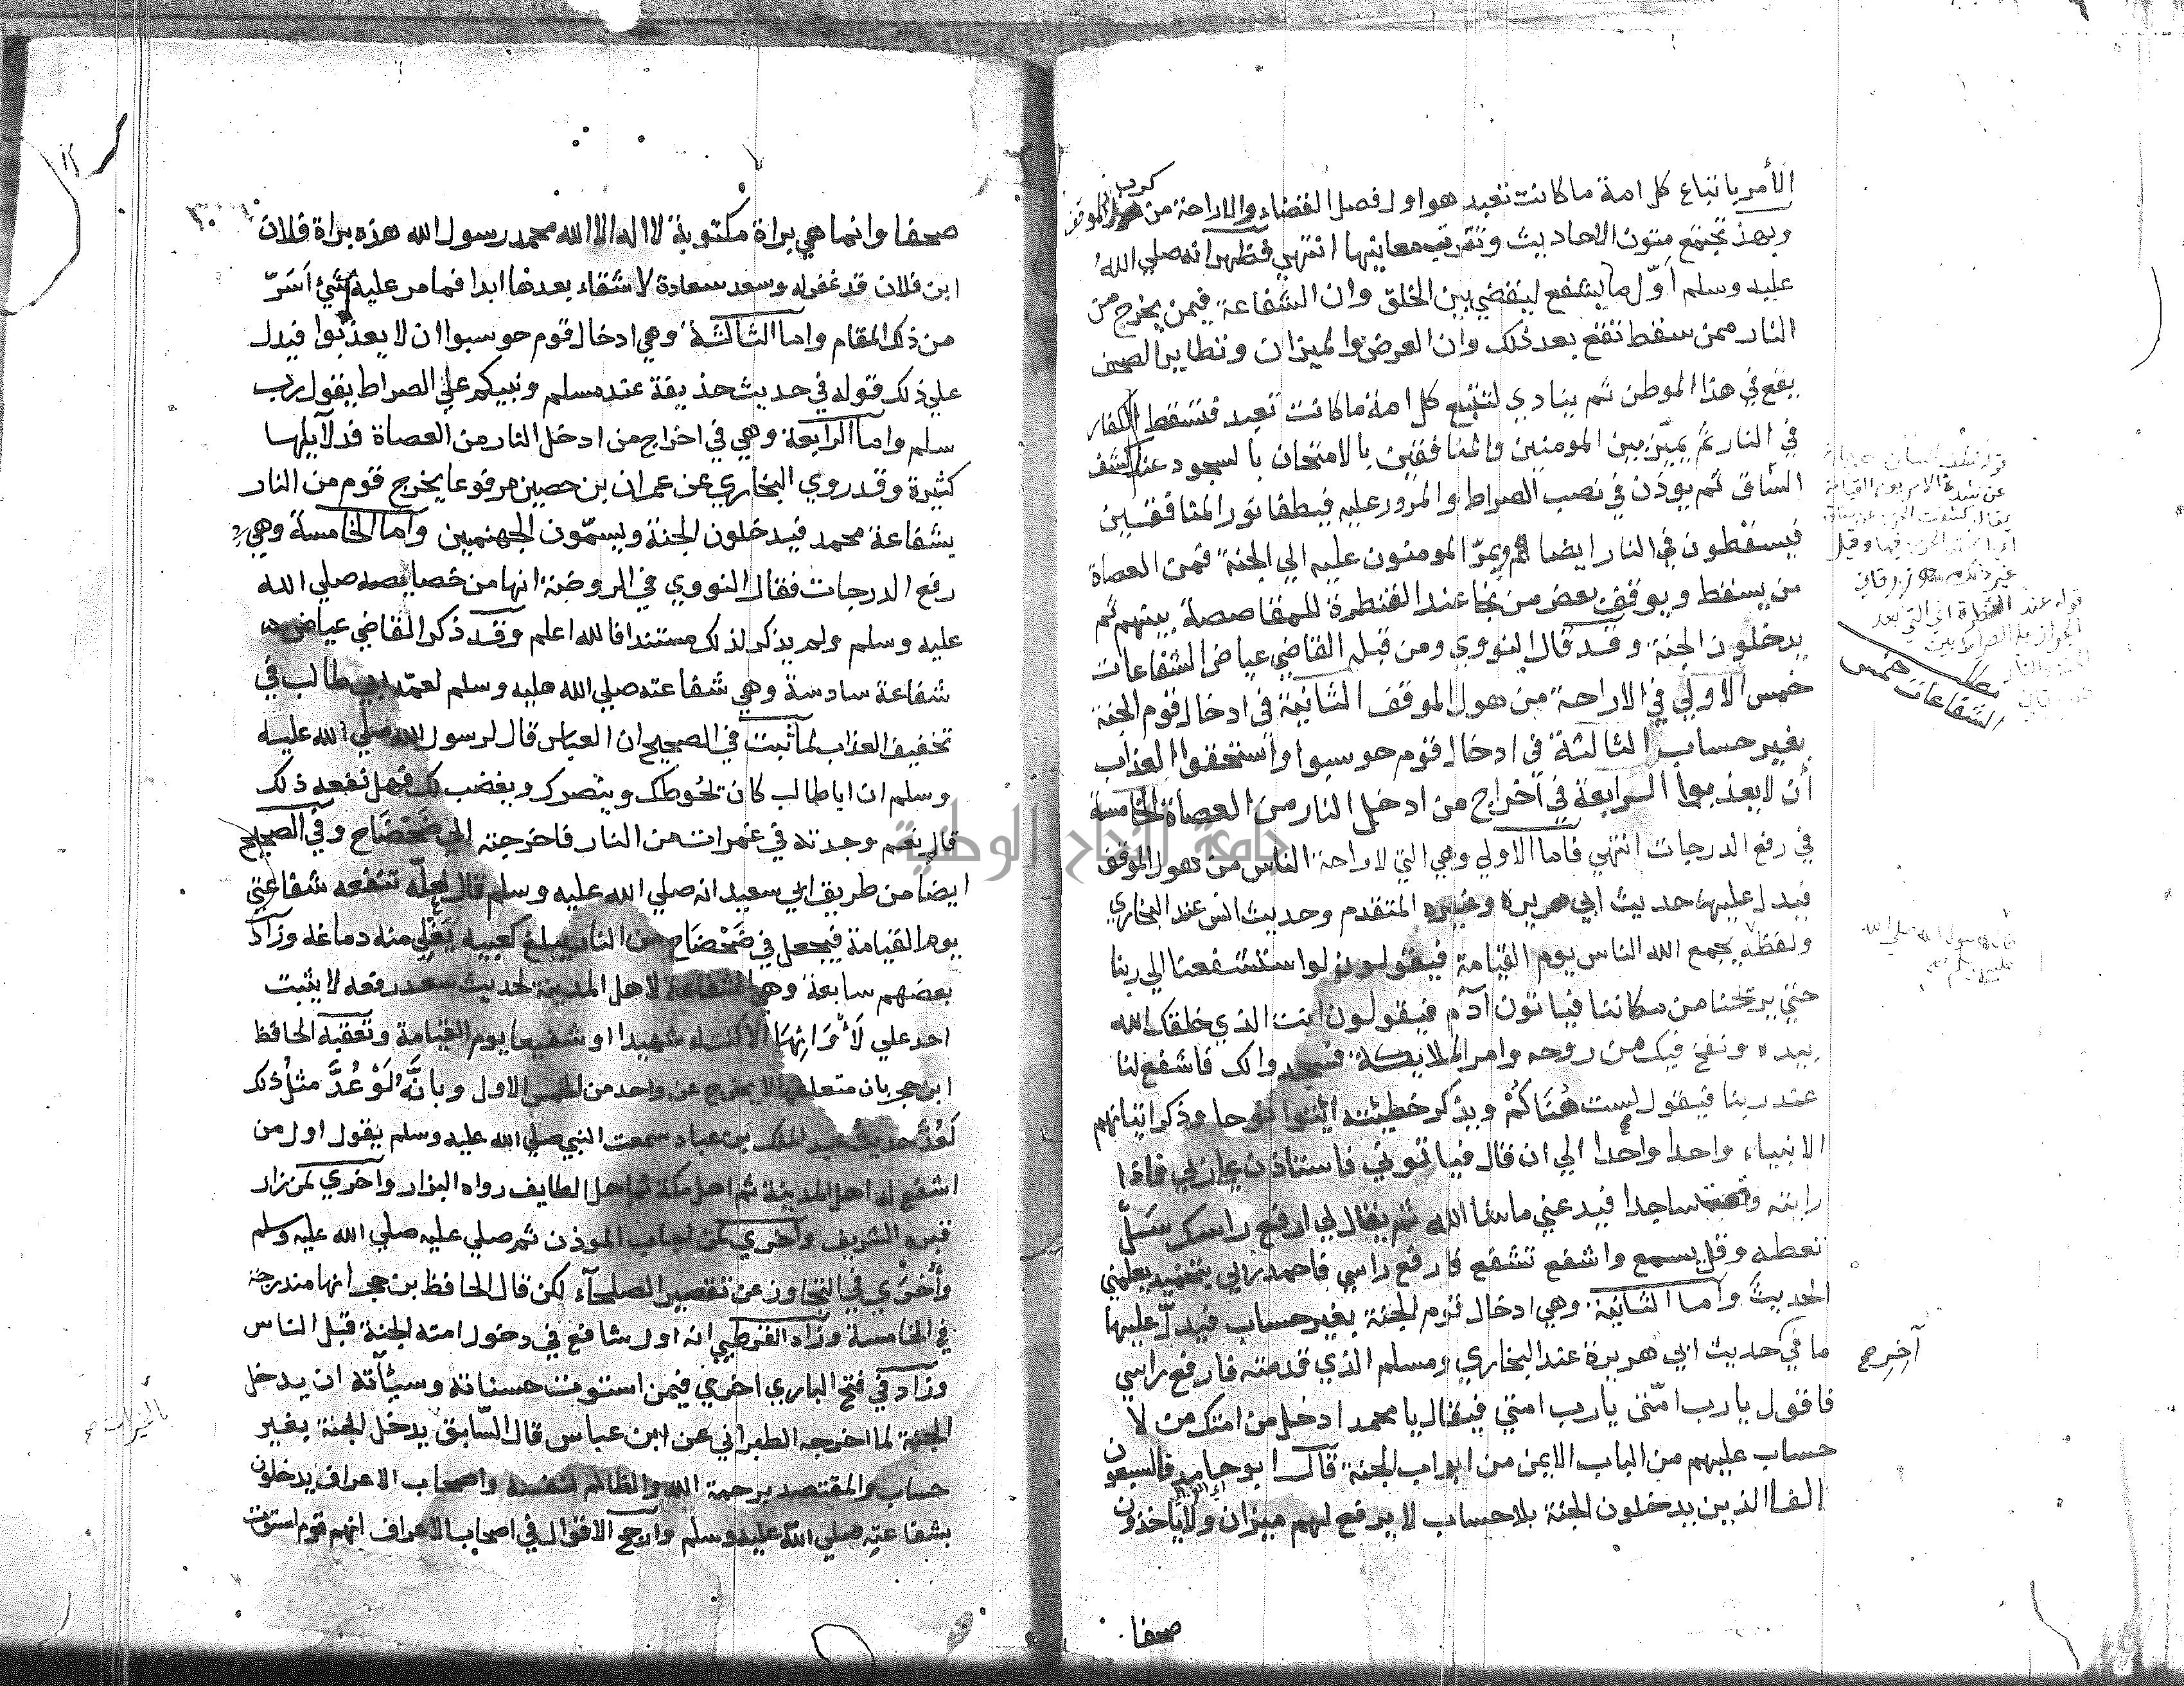 الأمر باتباع كل امة ما كانت تعبد هو اول فصل القضاء والاراحة من كرب الموقف
وبهذا تجتمع متون الاحاديث وتترتب معانيها انتهي فظهر انه صلي الله
عليه وسلم اوّل ما يشفع ليقضي بين الخلق وان الشفاعة فيمن يخرج من
النار ممن سقط تقع بعد ذلك وان العرض والميزان وتطاير الصحف
يقع في هذا الموطن ثم ينادي لتتبع كل امة ما كانت تعبد فتسقط الكفار
في النار ثم يميّز بين المومنين والمنافقين بالامتحان بالسجود عند كشف
السّاق ثم يوذن في نصب الصراط والمرور عليه فيطفا نور المنافقين
فيسقطون في النار ايضا ويمرّ المومنون عليه الي الجنة فمن العصاة
من يسقط ويوقف بعض من نجا عند القنطرة للمقاصصة بينهم ثم
يدخلون الجنة وقد قال النووي ومن قبله القاضي عياض الشفاعات
خمس الاولي في الاراحة من هول الموقف الثانية في ادخال قوم الجنة
بغير حساب الثالثة في ادخال قوم حوسبوا واستحقوا العذاب
أن لا يعذبوا الرابعة في اخراج من ادخل النار من العصاة الخامسة
في رفع الدرجات انتهي فاما الاولي وهي التي لاراحة الناس من هول الموقف
فيدل عليها حديث ابي هريرة وغيره المتقدم وحديث انس عند البخاري
ولفظه يجمع الله الناس يوم القيامة فيقولون لو استشفعنا الي ربنا
حتي يريحنا من مكاننا فياتون آدم فيقولون انت الذي خلقك الله
بيده ونفخ فيك من روحه وامر الملايكة فسجدوا لك فاشفع لنا
عند ربنا فيقول لست هُنَاكُمْ ويذكر خطيئته ائتوا نوحا وذكر اتيانهم
الانبياء واحدا واحدا الي ان قال فياتوني فاستاذن علي ربي فاذا
رايته وقعت ساجدا فيدعني ما شا الله ثم يقال لي ارفع راسك سَلْ
تعطه وقل يسمع واشفع تشفع فارفع راسي فاحمد ربي بتحميد يعلمني
الحديث وأما الثانية وهي ادخال قوم الجنة بغير حساب فيدلّ عليها
ما في حديث ابي هريرة عند البخاري ومسلم الذي قدمته فارفع راسي
فاقول يا رب امّتي يا رب امتي فيقال يا محمد ادخل من امتك من لا
حساب عليهم من الباب الايمن من ابواب الجنة قال ابو حامد فالسبعون
الفا الذين يدخلون الجنة بلا حساب لا يرفع لهم ميزان ولا ياخذون
صحفا
مطلب
الشفاعات خمس
آخر صح
صحفا وانما هي براة مكتوبة لا اله الا الله محمد رسول الله هذه براة فلان
ابن فلان قد غفر له وسعد سعادة لا شقاء بعدها ابدا فما مر عليه شئ اَسَرّ
من ذلك المقام واما الثالثة وهي ادخال قوم حوسبوا ان لا يعذبوا فيدل
علي ذلك قوله في حديث حذيفة عند مسلم ونبيكم علي الصراط يقول رب
سلم واما الرابعة وهي في اخراج من ادخل النار من العصاة فدلايلها
كثيرة وقد روي البخاري عن عمران بن حصين مرفوعا يخرج قوم من النار
بشفاعة محمد فيدخلون الجنة ويسمّون الجهنميين واما الخامسة وهي
رفع الدرجات فقال النووي في الروضة انها من خصايصه صلي الله
عليه وسلم ولم يذكر لذلك مستندا فالله اعلم وقد ذكر القاضي عياض
شفاعة سادسة وهي شفاعته صلي الله عليه وسلم لعمّه ابي طالب في
تخفيف العذاب لما ثبت في الصحيح ان العباس قال لرسول الله صلي الله عليه
وسلم ان ابا طالب كان يحُوطك وينصرك ويغضب لك فهل نفعه ذلك
قال نعم وجدته في غمرات من النار فاخرجته الي ضَحْضَاح وفي الصحيح
ايضا من طريق ابي سعيد انه صلي الله عليه وسلم قال لعلّه تنفعه شفاعتي
يوم القيامة فيجعل في ضَحْضَاح من النار يبلغ كعبيه يَغْلِي منه دماغه وزاد
بعضهم سابعة وهي الشفاعة لاهل المدينة لحديث سعد رفعه لا يثبت
احد علي لَأْوَائِهَا الا كنت له شهيدا او شفيعا يوم القيامة وتعقبه الحافظ
ابن حجر بان متعلقها لا يخرج عن واحد من الخمس الاول وبانَّه لَوْ عُدَّ مثل ذلك
لَعُدَّ حديث عبد الملك بن عباد سمعت النبي صلي الله عليه وسلم يقول اول من
اشفع له اهل المدينة ثم اهل مكة ثم اهل الطايف رواه البزار واخري لمن زار
قبره الشريف وأخري لمن اجاب الموذن ثم صلي عليه صلي الله عليه وسلم
وأُخرَي في التجاوز عن تقصير الصلحآء لكن قال الحافظ بن حجر انها مندرجة
في الخامسة وزاد القرطبي انه اول شافع في دخول امته الجنة قبل الناس
وزاد في فتح الباري اخري فيمن استوت حسناته وسيئاته ان يدخل
الجنة لما اخرجه الطبراني عن ابن عباس قال السّابق يدخل الجنة بغير
حساب والمقتصد برحمة الله والظالم لنفسه واصحاب الاعراف يدخلون
بشفاعته صلي الله عليه وسلم وارجح الاقوال في اصحاب الاعراف انهم قوم استوت
بالخيرات صح
جامعة النجاح الوطنية